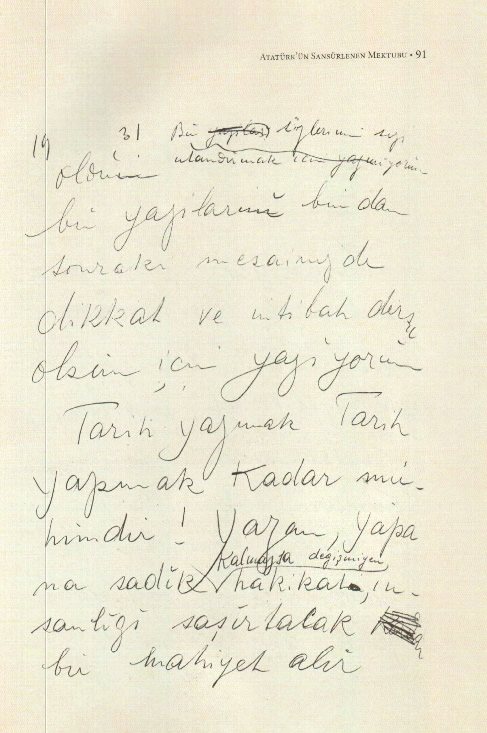 ATATÜRK'ÜN SANSÜRLENEN MEKTUBU • 91
19 31 Bu sözlerimi sizi
utandırmak için yazmıyorum
bu yazılarımı bundan
sonraki mesainizde
dikkat ve intibah dersi
olsun için yazıyorum
Tarih yazmak Tarih
yapmak kadar mü-
himdir! Yazan, yapa
kalmazsa değişmiyen
na sadık hakikat, in-
sanlığı şaşırtacak
bir mahiyet alır